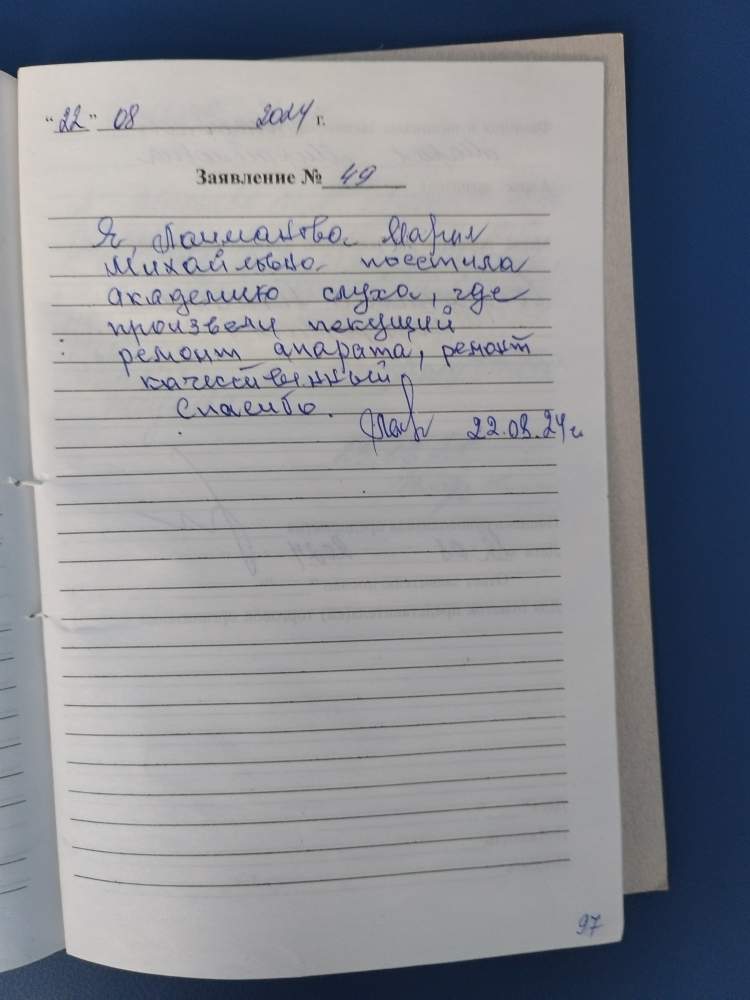 "22" 08 2024 г.
Заявление № 49
Я, Мария
Михайловна посетила
академию слуха, где
произвели текущий
ремонт апарата, ремонт
качественный
Спасибо.
22.08.24 г.
97